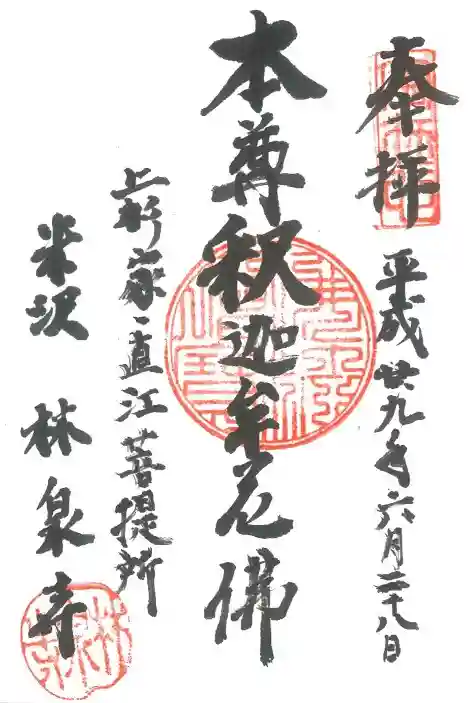 奉拝
平成廿九年六月二十八日
本尊釈迦牟尼佛
上杉家、直江菩提所
米沢
林泉寺